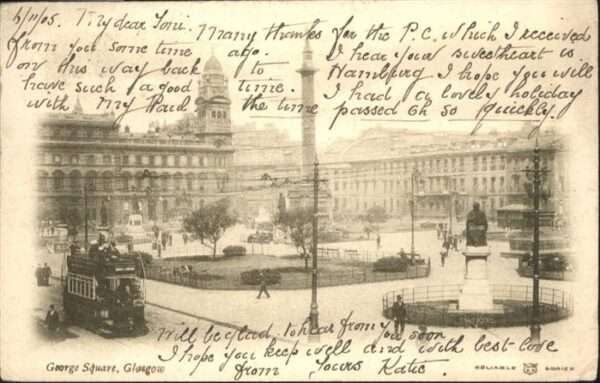 6/11/05. My dear Toni. Many thanks for the P.C. which I received
from you some time ago. I hear your sweetheart is
on this way back to Hamburg I hope you will
have such a good time. I had a lovely holiday
with my Paul the time passed oh so quickly.
Will be glad to hear from You soon
I hope you keep well and with best love
from Yours Katie.
George Square, Glasgow
RELIABLE SERIES